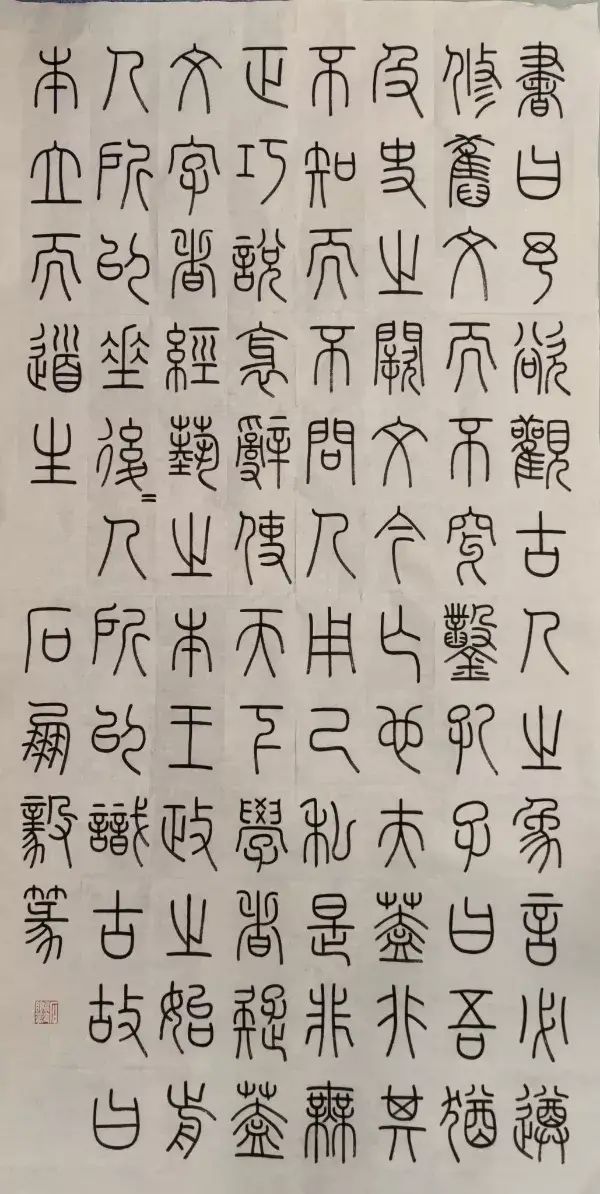 書曰予欲觀古人之象言必遵
修舊文而不穿鑿孔子曰吾猶
及史之闕文今亡也夫蓋非其
不知而不問人用己私是非無
正巧說衺辭使天下學者疑蓋
文字者經藝之本王政之始前
人所以垂後=人所以識古故曰
本立而道生 石毅篆